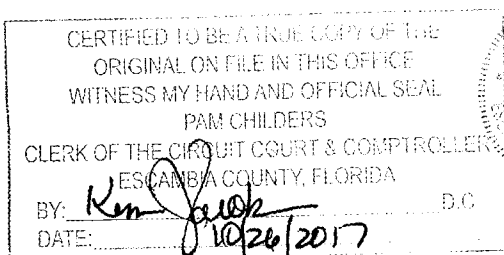 CERTIFIED TO BE A TRUE COPY OF THE
ORIGINAL ON FILE IN THIS OFFICE
WITNESS MY HAND AND OFFICIAL SEAL
PAM CHILDERS
CLERK OF THE CIRCUIT COURT & COMPTROLLER
ESCAMBIA COUNTY, FLORIDA
BY: D.C
DATE: 10/26/2017